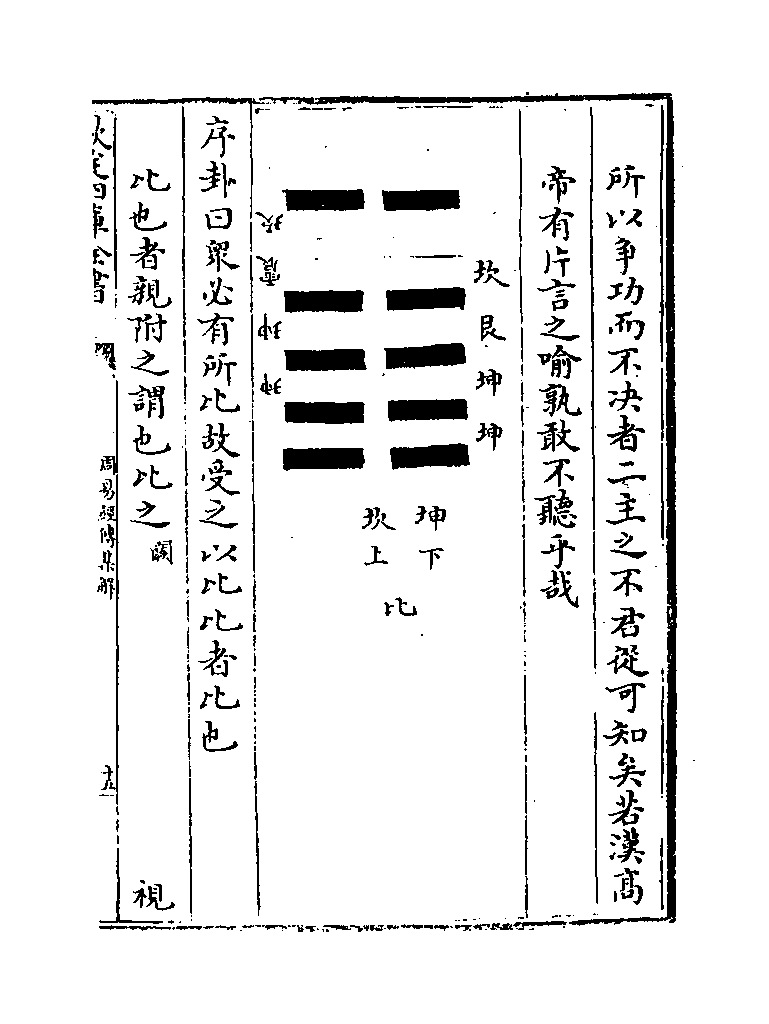 所以争功而不决者二主之不君從可知矣若漢髙
帝有片言之喻孰敢不聽乎哉
坎
艮
坤
坤
坎
震
坤
坤
坤下
坎上
比
序卦曰衆必有所比故受之以比比者比也
比也者親附之謂也比之闕 視
欽定四庫全書
周易經傳集解
十五